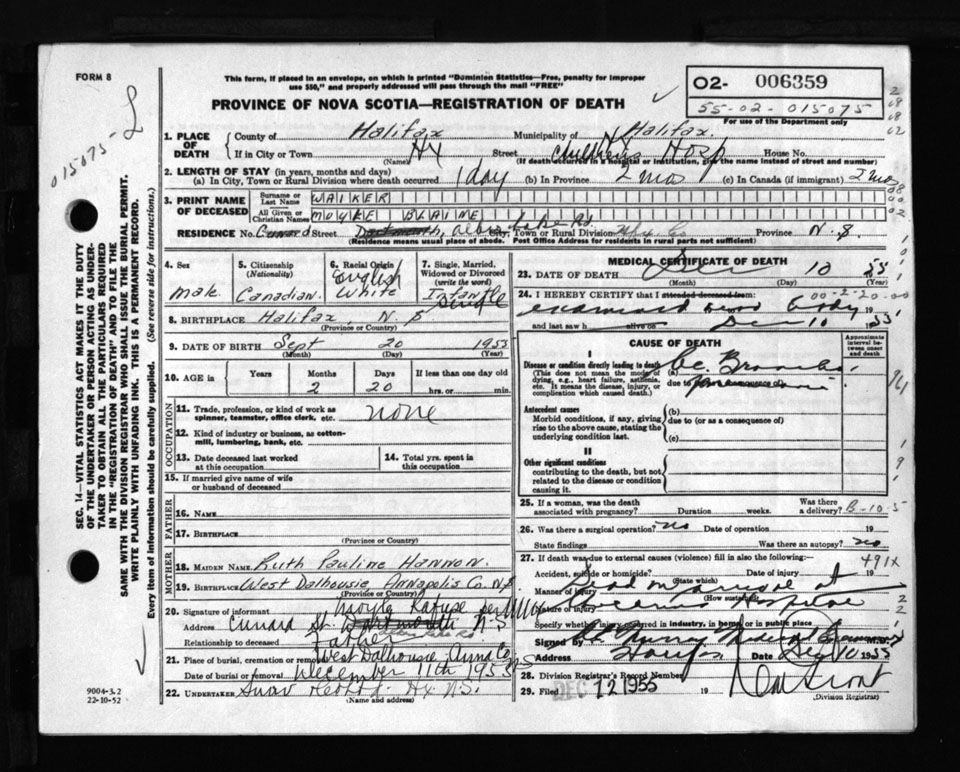 FORM 8
This form, if placed in an envelope, on which is printed "Dominion Statistics—Free, penalty for improper
use $50," and properly addressed will pass through the mail "FREE"
PROVINCE OF NOVA SCOTIA—REGISTRATION OF DEATH
02- 006359
55-02-015075
For use of the Department only
015075
SEC. 14—VITAL STATISTICS ACT MAKES IT THE DUTY
OF THE UNDERTAKER OR PERSON ACTING AS UNDER-
TAKER TO OBTAIN ALL THE PARTICULARS REQUIRED
IN THE "REGISTRATION OF DEATH" AND TO FILE THE
SAME WITH THE DIVISION REGISTRAR WHO SHALL ISSUE THE BURIAL PERMIT.
WRITE PLAINLY WITH UNFADING INK. THIS IS A PERMANENT RECORD.
Every item of information should be carefully supplied. (See reverse side for instructions.)
1. PLACE OF DEATH
County of Halifax Municipality of Halifax.
If in City or Town Hx Street Childrens Hosp House No.
(Name) (If death occurred in a hospital or institution, give the name instead of street and number)
2. LENGTH OF STAY (in years, months and days)
(a) In City, Town or Rural Division where death occurred 1 day (b) In Province 2 mo (c) In Canada (if immigrant) 2 mo
3. PRINT NAME OF DECEASED
Surname or Last Name WALKER
All Given or Christian Names MOYKE BLAINE
RESIDENCE No. Cunard Street Dartmouth, Lake Rd City, Town or Rural Division Hfx. Co Province N.S.
(Residence means usual place of abode. Post Office Address for residents in rural parts not sufficient)
4. Sex
Male
5. Citizenship
(Nationality)
Canadian.
6. Racial Origin
English
White
7. Single, Married,
Widowed or Divorced
(write the word)
Infant
Single
8. BIRTHPLACE Halifax, N.S
(Province or Country)
9. DATE OF BIRTH Sept 20 1955
(Month) (Day) (Year)
10. AGE in
Years Months Days If less than one day old
2 20 hrs. or min.
OCCUPATION
11. Trade, profession, or kind of work as
spinner, teamster, office clerk, etc. none
12. Kind of industry or business, as cotton-
mill, lumbering, bank, etc.
13. Date deceased last worked
at this occupation
14. Total yrs. spent in
this occupation
15. If married give name of wife
or husband of deceased
FATHER
16. Name
17. Birthplace
(Province or Country)
MOTHER
18. MAIDEN NAME Ruth Pauline Hannon.
19. BIRTHPLACE West Dalhousie, Annapolis Co. N.S
(Province or Country)
20. Signature of informant per
Address Cunard St. Dartmouth N.S
Relationship to deceased
21. Place of burial, cremation or removal West Dalhousie, Anna Co NS
Date of burial or removal December 11th 1955
22. UNDERTAKER Hx N.S.
(Name and address)
9004-3.2
22-10-52
MEDICAL CERTIFICATE OF DEATH
23. DATE OF DEATH Dec 10 55
(Month) (Day) (Year)
24. I HEREBY CERTIFY that I attended deceased from:
00-2-20-00
examined body 19
and last saw h alive on Dec 10 1955
CAUSE OF DEATH
Approximate interval between onset and death
I
Disease or condition directly leading to death
(This does not mean the mode of
dying, e.g., heart failure, asthenia,
etc. It means the disease, injury, or
complication which caused death.)
(a) Ac. Broncho
due to (or as a consequence of) pneumonia
Antecedent causes
Morbid conditions, if any, giving
rise to the above cause, stating the
underlying condition last.
(b)
due to (or as a consequence of)
(c)
II
Other significant conditions
contributing to the death, but not
related to the disease or condition
causing it.
25. If a woman, was the death
associated with pregnancy? Duration weeks. Was there
a delivery? B-10-5
26. Was there a surgical operation? no Date of operation 19
State findings Was there an autopsy?
27. If death was due to external causes (violence) fill in also the following:— 491X
Accident, suicide or homicide? Date of injury 19
(State which)
Manner of injury Dead on arrival at
(How sustained)
Nature of injury Hospital
Specify whether injury occurred in industry, in home, or in public place
Signed by Murray Medical Examiner M.D.
Address Halifax Date Dec 10 1955
28. Division Registrar's Record Number
29. Filed DEC 12 1955 19
(Division Registrar)